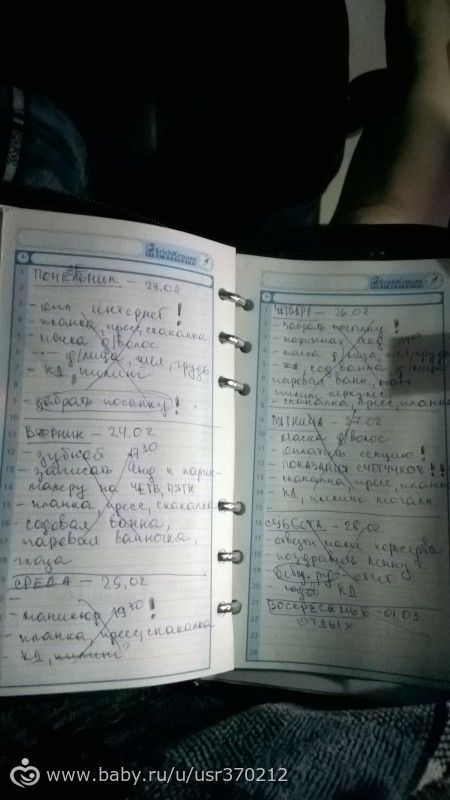 ErichKrause
ПОНЕДЕЛЬНИК - 23.02
- опл интернет!
- планка, пресс, скакалка
- маска д/волос
- д/лица, шея, грудь
- КД, пилинг
- забрать посылку!
ВТОРНИК - 24.02
- зубной 17 30
- записать Анд к парик-
махеру на ЧЕТВ, ПЯТН
- планка, пресс, скакалка
- содовая ванна,
паровая ванночка,
лица
СРЕДА - 25.02
- маникюр 19 30!
- планка, пресс, скакалка
- КД, пилинг
ErichKrause
ЧЕТВЕРГ - 26.02
- забрать !
- парикмах Анд
- маска д/лица, шея, грудь
- КД, сод ванна, д/лица
паровая ванн,
пилинг
- скакалка, пресс, планка
ПЯТНИЦА - 27.02
- маска д/волос
- оплатить секцию!
- ПОКАЗАНИЯ СЧЕТЧИКОВ!!
- скакалка, пресс, планка
- КД, пилинг
СУББОТА - 28.02
- отвезти
- поздравить
- отчет
КД
ВОСКРЕСЕНЬЕ - 01.03
ОТДЫХ
www.baby.ru/u/usr370212